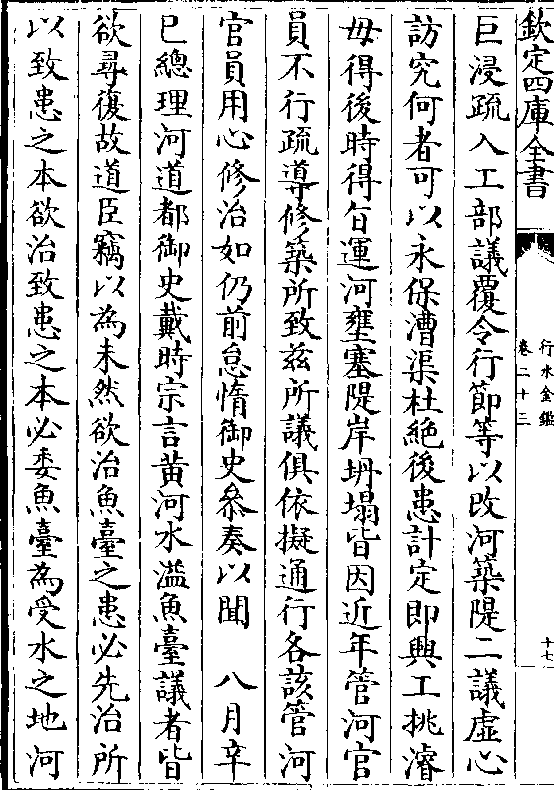 欽定四庫全書
行水金鑑
卷二十三
十七
巨浸疏入工部議覆令行節等以改河築隄二議虛心
訪究何者可以永保漕渠杜絶後患計定即興工挑濬
毋得後時得㫖運河壅塞隄岸坍塌皆因近年管河官
員不行疏導修築所致兹所議俱依擬通行各該管河
官員用心修治如仍前怠惰御史叅奏以聞　八月辛
已總理河道都御史戴時宗言黄河水溢魚臺議者皆
欲尋復故道臣竊以為未然欲治魚臺之患必先治所
以致患之本欲治致患之本必委魚臺為受水之地河